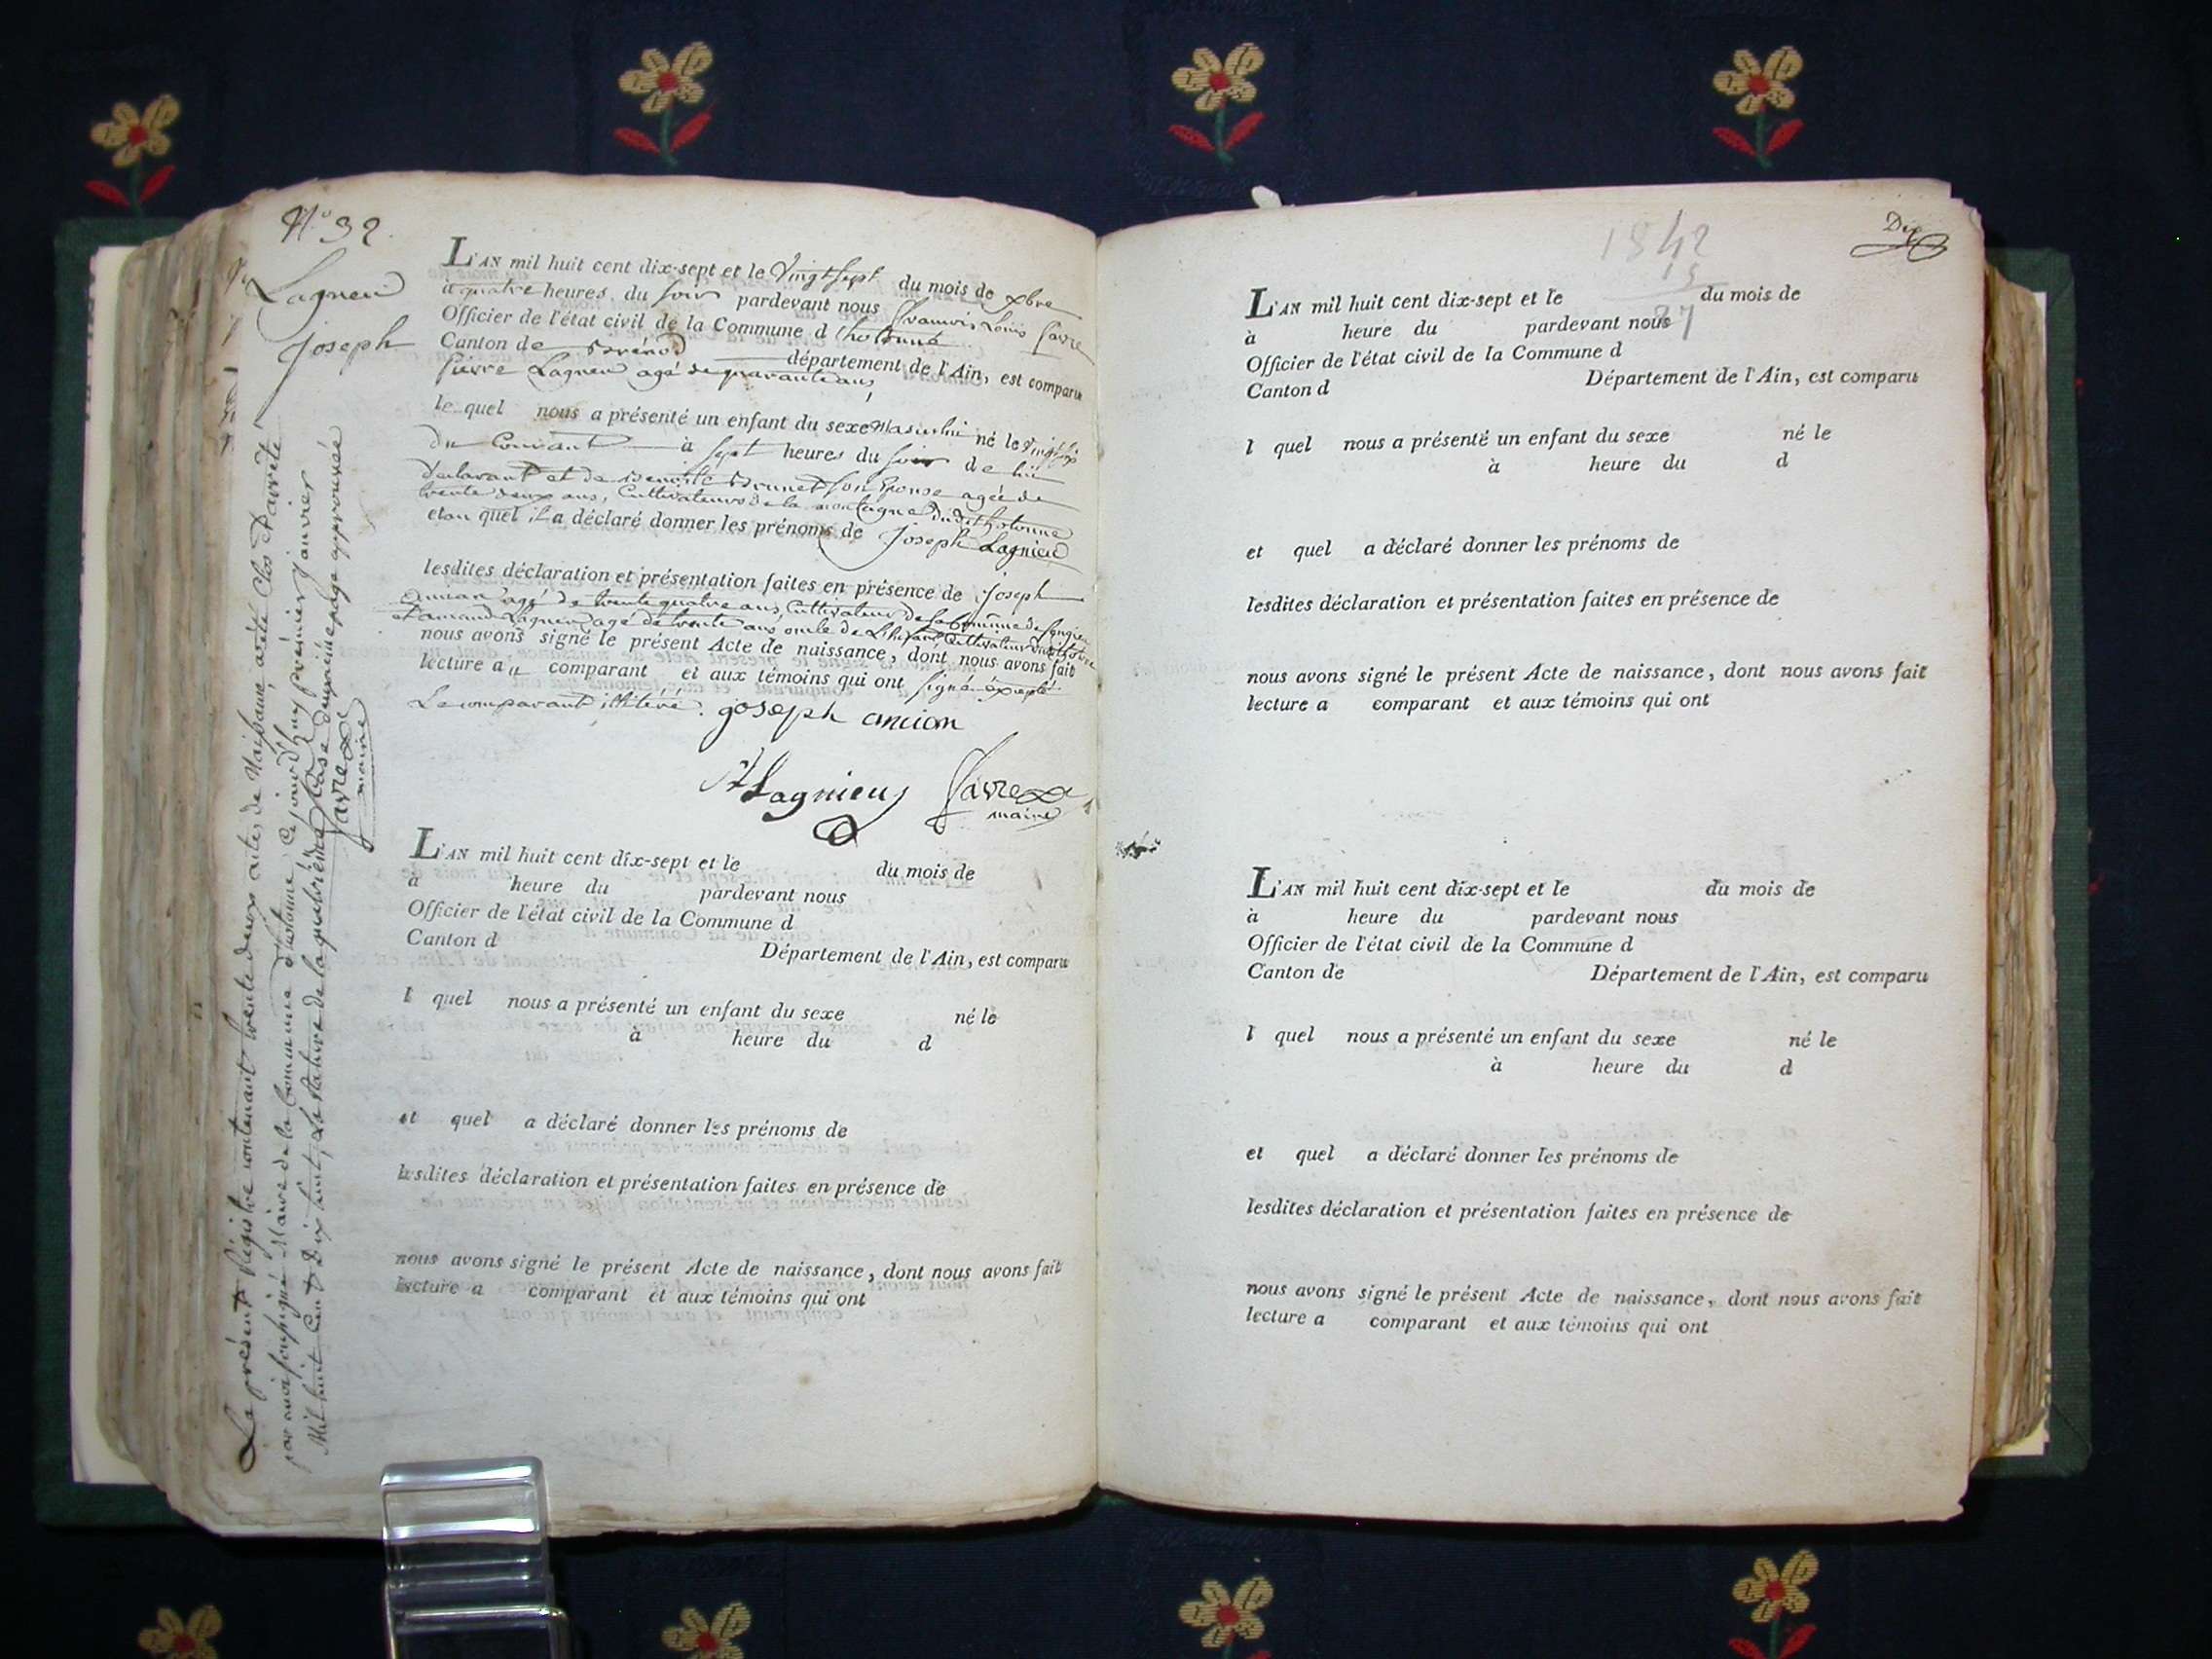 N.o 32.
Lagnieu
Joseph
L'AN mil huit cent dix-sept et le Vingt sept du mois de xbre
à quatre heures du soir pardevant nous francois Louis favre
Officier de l'état civil de la Commune d'hotonne
Canton de Brénod département de l'Ain, est comparu
Pierre Lagnieu agé de quarante ans,
le quel nous a présenté un enfant du sexe Masculin né le Vingt six
du Courant à sept heures du soir de lui
déclarant et de Benoite Brunet son Epouse agée de
trente deux ans, Cultivateurs de la montagne dudit hotonne
et au quel il a déclaré donner les prénoms de Joseph Lagnieu
lesdites déclaration et présentation faites en présence de Joseph
Ancian agé de trente quatre ans Cultivateur de la Commune de Songieu
et amand Lagnieu agé de trente ans oncle de L'Enfant Cultivateur dudit hotonne
nous avons signé le présent Acte de naissance, dont nous avons fait
lecture au comparant et aux témoins qui ont signé éxcepté
Le comparant illitéré.
joseph ancian
A Lagnieu
favre
maire
L'AN mil huit cent dix-sept et le du mois de
à heure du pardevant nous
Officier de l'état civil de la Commune d
Canton d Département de l'Ain, est comparu
l quel nous a présenté un enfant du sexe né le
à heure du d
et quel a déclaré donner les prénoms de
lesdites déclaration et présentation faites en présence de
nous avons signé le présent Acte de naissance, dont nous avons fait
lecture a comparant et aux témoins qui ont
Le présent Régistre contenant trente deux actes de Naissance, arrêté Clos
par moi soussigné Maire de la Commune d'hotonne Ce jourd'huy prémier janvier
Mil huit Cent Dix huit, La Rature de la quatrième page approuvée
favre
maire
1842
15
27
Dix
L'AN mil huit cent dix-sept et le du mois de
à heure du pardevant nous
Officier de l'état civil de la Commune d
Canton d Département de l'Ain, est comparu
l quel nous a présenté un enfant du sexe né le
à heure du d
et quel a déclaré donner les prénoms de
lesdites déclaration et présentation faites en présence de
nous avons signé le présent Acte de naissance, dont nous avons fait
lecture a comparant et aux témoins qui ont
L'AN mil huit cent dix-sept et le du mois de
à heure du pardevant nous
Officier de l'état civil de la Commune d
Canton de Département de l'Ain, est comparu
l quel nous a présenté un enfant du sexe né le
à heure du d
et quel a déclaré donner les prénoms de
lesdites déclaration et présentation faites en présence de
nous avons signé le présent Acte de naissance, dont nous avons fait
lecture a comparant et aux témoins qui ont